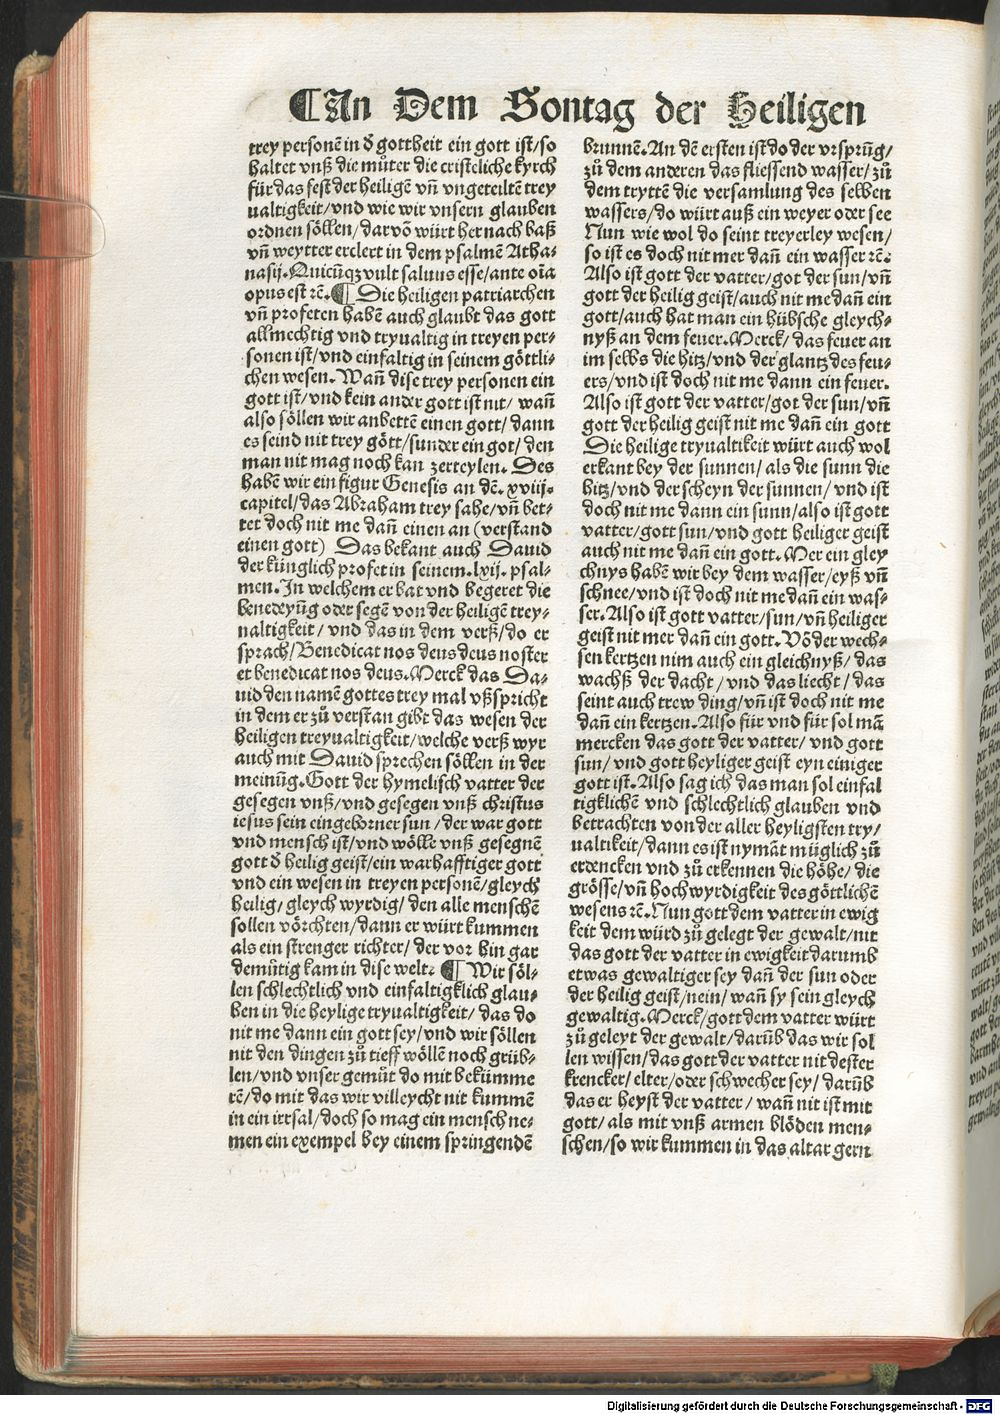 ¶ An Dem Sontag der Heiligen
trey personẽ in d̕ gottheit ein gott ist/so
haltet vnß die můter die cristeliche kyrch
für das fest der heiligẽ vñ vngeteiltẽ trey
ualtigkeit/vnd wie wir vnsern glauben
ordnen söllen/daruõ würt her nach baß
vñ weytter erclert in dem psalmẽ Atha⸗
nasij. Quicũqꝫ vult saluus esse/ante oĩa
opus est ꝛẽ. ¶ Die heiligen patriarchen
vñ profeten habẽ auch glaubt das gott
allmechtig vnd tryualtig in treyen per⸗
sonen ist/vnd einfaltig in seinem göttli⸗
chen wesen. Wañ dise trey personen ein
gott ist/vnd kein ander gott ist nit/ wañ
also söllen wir anbettẽ einen gott/ dann
es seind nit trey gött/sunder ein got/ den
man nit mag noch kan zerteylen. Des
habẽ wir ein figur Genesis an dẽ. xviij.
capitel/das Abraham trey sahe/vñ bet⸗
tet doch nit me dañ einen an (verstand
einen gott) Das bekant auch Dauid
der künglich profet in seinem. lxij. psal⸗
men. In welchem er bat vnd begeret die
benedeyũg oder segẽ von der heiligẽ trey⸗
ualtigkeit/ vnd das in dem verß/do er
sprach/Benedicat nos deus deus noster
et benedicat nos deus. Merck das Da⸗
uid den namẽ gottes trey mal vßspricht
in dem er zů verstan gibt das wesen der
heiligen treyualtigkeit/welche verß wyr
auch mit Dauid sprechen söllen in der
meinũg. Gott der hymelisch vatter der
gesegen vnß/vnd gesegen vnß christus
iesus sein eingeborner sun/der war gott
vnd mensch ist/vnd wölle vnß gesegnẽ
gott d̕ heilig geist/ein warhafftiger gott
vnd ein wesen in treyen personẽ/gleych
heilig/gleych wyrdig/ den alle menschẽ
sollen vörchten/dann er würt kummen
als ein strenger richter/ der vor hin gar
demütig kam in dise welt. ¶ Wir söl⸗
len schlechtlich vnd einfaltigklich glau⸗
ben in die heylige tryualtigkeit/ das do
nit me dann ein gott sey/vnd wir söllen
nit den dingen zů tieff wöllẽ noch grüb⸗
len/vnd vnser gemüt do mit bekümme
rẽ/do mit das wir villeycht nit kummẽ
in ein irrsal/doch so mag ein mensch ne⸗
men ein exempel bey einem springendẽ
brunnẽ. An dẽ ersten ist do der vrsprũg/
zů dem anderen das fliessend wasser/ zů
dem trytten die versamlung des selben
wassers/do würt auß ein weyer oder see
Nun wie wol do seint treyerley wesen/
so ist es doch nit mer dañ ein wasser ꝛẽ.
Also ist gott der vatter/got der sun/vñ
gott der heilig geist/auch nit me dañ ein
gott/auch hat man ein hübsche gleych⸗
nyß an dem feuer. Merck/ das feuer an
im selbs die hitz/vnd der glantz des feu⸗
ers/vnd ist doch nit me dann ein feuer.
Also ist gott der vatter/got der sun/vñ
gott der heilig geist nit me dañ ein gott
Die heilige tryualtikeit würt auch wol
erkant bey der sunnen/ als die sunn die
hitz/vnd der scheyn der sunnen/ vnd ist
doch nit me dann ein sunn/also ist gott
vatter/gott sun/vnd gott heiliger geist
auch nit me dañ ein gott. Mer ein gley
chnys habẽ wir bey dem wasser/eyß vñ
schnee/vnd ist doch nit me dañ ein was⸗
ser. Also ist gott vatter/sun/vñ heiliger
geist nit mer dañ ein gott. Võ der wech⸗
sen kertzen nim auch ein gleichnyß/ das
wachß der dacht/ vnd das liecht/ das
seint auch trew ding/vñ ist doch nit me
dañ ein kertzen. Also für vnd für sol mã
mercken das gott der vatter/ vnd gott
sun/ vnd gott heyliger geist eyn einiger
gott ist. Also sag ich das man sol einfal
tigklichẽ vnd schlechtlich glauben vnd
betrachten von der aller heyligsten try/
ualtikeit/dann es ist nymãt müglich zů
erdencken vnd zů erkennen die höhe/ die
grösse/vñ hochwyrdigkeit des göttlichẽ
wesens ꝛẽ. Nun gott dem vatter in ewig
keit dem würd zů gelegt der gewalt/nit
das gott der vatter in ewigkeit darumb
etwas gewaltiger sey dañ der sun oder
der heilig geist/nein/ wañ sy sein gleych
gewaltig. Merck/gott dem vatter würt
zů geleyt der gewalt/darũb das wir sol
len wissen/das gott der vatter nit dester
krencker/ elter/oder schwecher sey/ darũb
das er heyst der vatter/ wañ nit ist mit
gott/ als mit vnß armen blöden men⸗
schen/so wir kummen in das altar gern
Digitalisierung gefördert durch die Deutsche Forschungsgemeinschaft - DFG